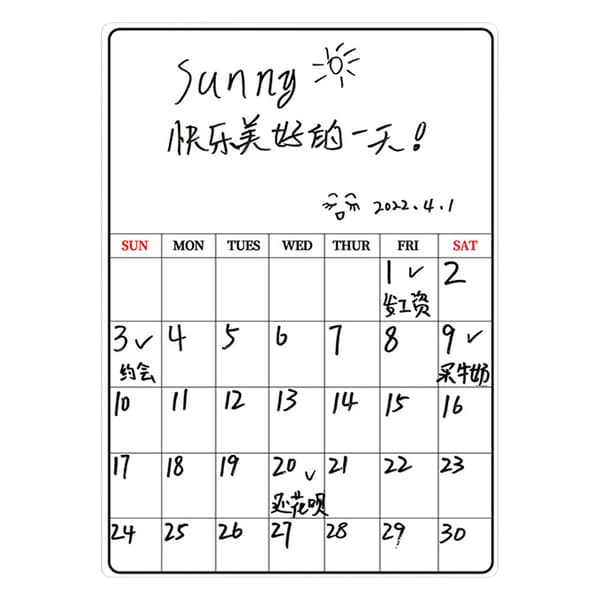 Sunny
快乐美好的一天!
2022.4.1
SUN MON TUES WED THUR FRI SAT
1 ✓ 2
发工资
3 ✓ 4 5 6 7 8 9 ✓
约会 买牛奶
10 11 12 13 14 15 16
17 18 19 20 ✓ 21 22 23
还花呗
24 25 26 27 28 29 30